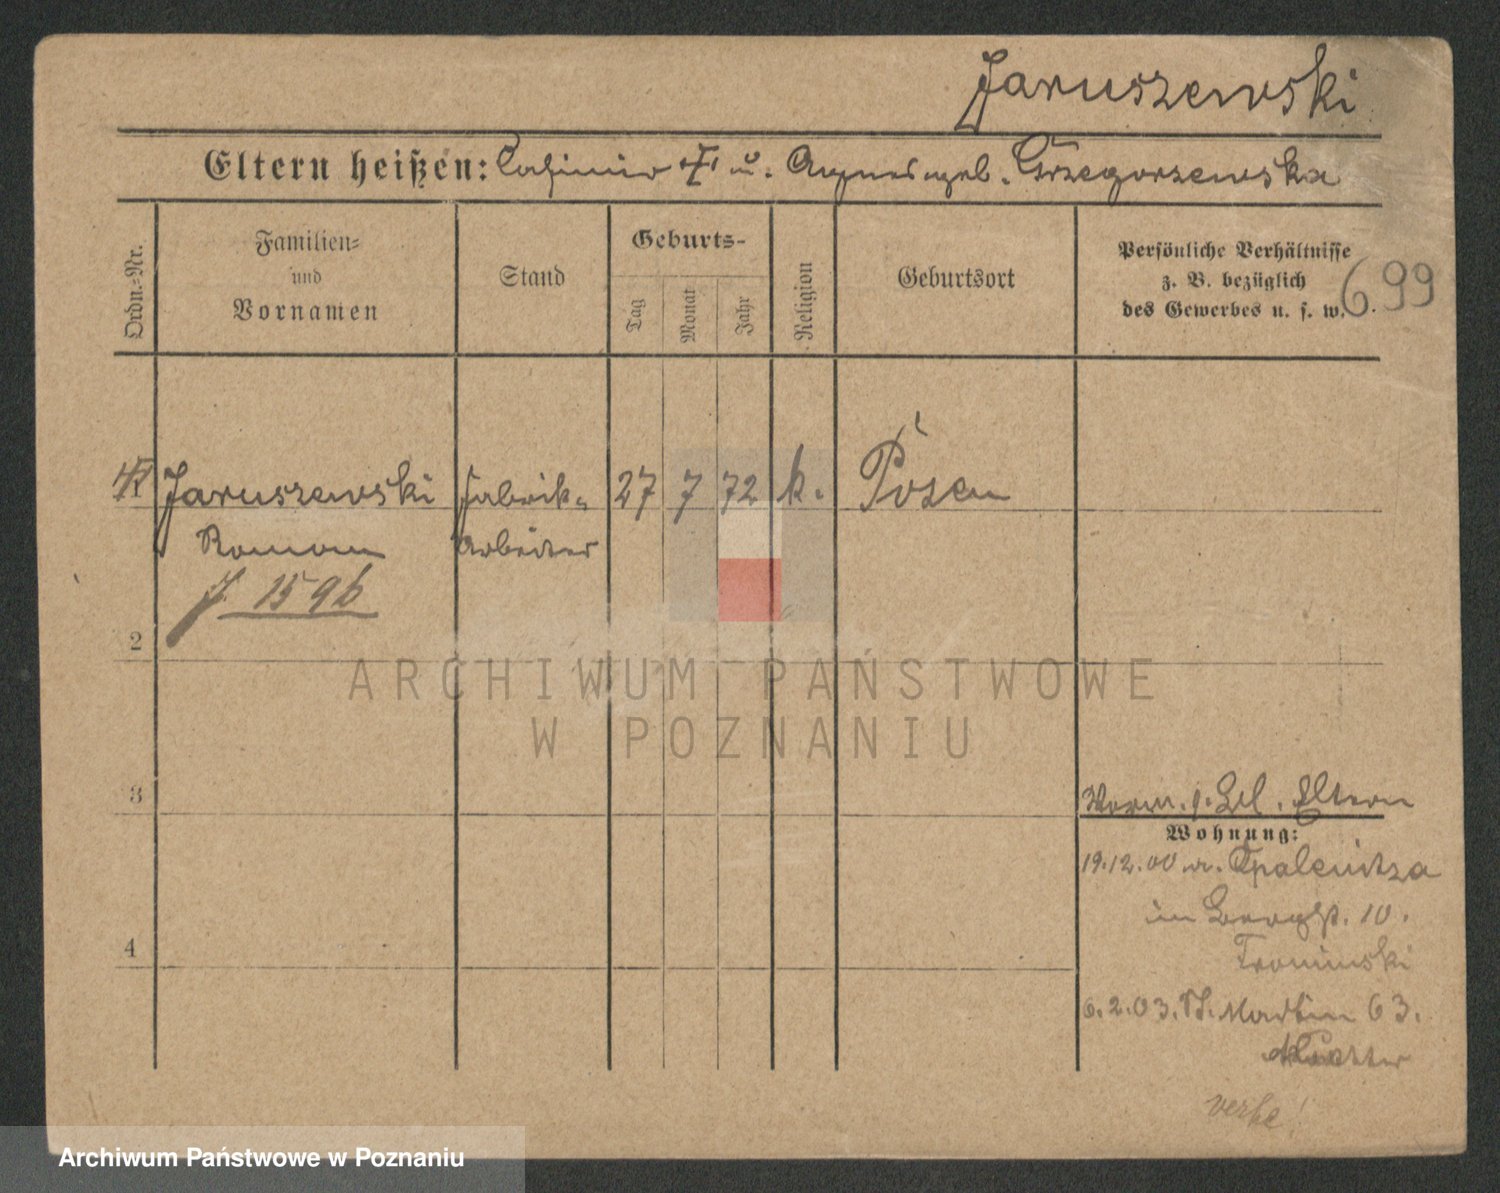 Jaruszewski
Eltern heißen: Casimir u. Agnes geb. Grzegorzewska
Ordn.-Nr.
Familien-
und
Vornamen
Stand
Geburts-
Tag
Monat
Jahr
Religion
Geburtsort
Persönliche Verhältnisse
z. B. bezüglich
des Gewerbes u. s. w.
699
1 Jaruszewski Fabrik- 27 7 72 k. Posen
Roman Arbeiter
J 1596
2
ARCHIWUM PAŃSTWOWE
W POZNANIU
3
Eltern
Wohnung:
19.12.00 Opalenitza
in Bergst. 10.
4
Trominski
6.2.03. St. Martin 63.
Mutter
Archiwum Państwowe w Poznaniu